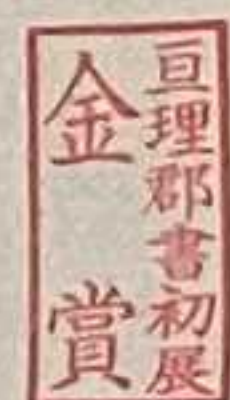 亘理郡書初展
金賞